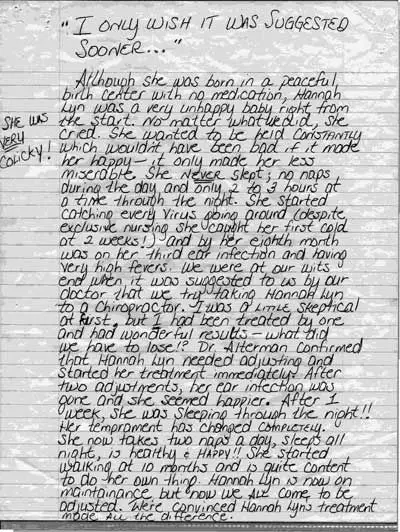 "I ONLY WISH IT WAS SUGGESTED
SOONER..."
Although she was born in a peaceful,
birth center with no medication, Hannah
Lyn was a very unhappy baby right from
the start. No matter what we did, she
cried. She wanted to be held CONSTANTLY
which wouldn't have been bad if it made
her happy - it only made her less
miserable. She NEVER slept; no naps
during the day and only 2 to 3 hours at
a time through the night. She started
catching every virus going around (despite,
exclusive nursing she caught her first cold
at 2 weeks!) and by her eighth month
was on her third ear infection and having
very high fevers. We were at our wits
end when it was suggested to us by our
doctor that we try taking Hannah Lyn
to a Chiropractor. I was a LITTLE skeptical
at first, but I had been treated by one
and had wonderful results - what did
we have to lose!? Dr. Alterman confirmed
that Hannah Lyn needed adjusting and
started her treatment immediately! After
two adjustments, her ear infection was
gone and she seemed happier. After 1
week, she was sleeping through the night!!
Her temprament has changed COMPLETELY.
She now takes two naps a day, sleeps all
night, is healthy & HAPPY!! She started
walking at 10 months and is quite content
to do her own thing. Hannah Lyn is now on
maintainance, but now we ALL come to be
adjusted. We're convinced Hannah Lyn's treatment
made ALL the difference.
SHE WAS
VERY
COLICKY!